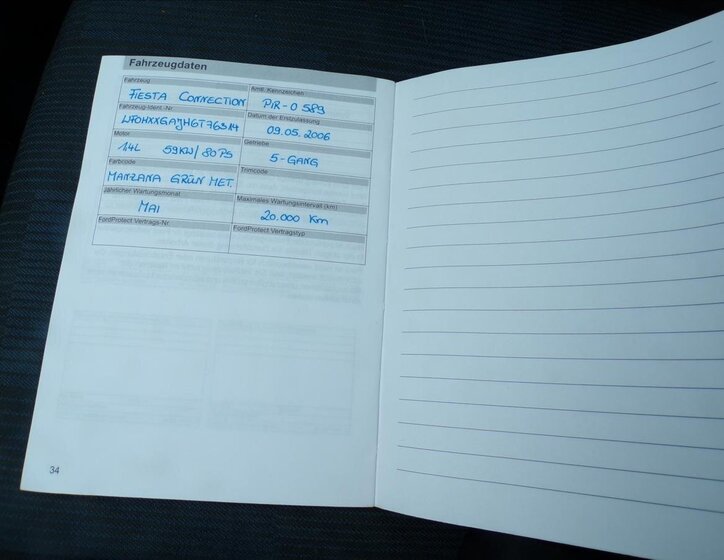 Fahrzeugdaten
Fahrzeug
Amtl. Kennzeichen
FIESTA CONNECTION
PIR-O 589
Fahrzeug-Ident.-Nr
Datum der Erstzulassung
09.05.2006
Motor
Getriebe
1.4L 59KW/80PS
5-GANG
Farbcode
Trimcode
MANZANA GRÜN MET.
jährlicher Wartungsmonat
Maximales Wartungsintervall (km)
MAI
20.000 Km
FordProtect Vertrags-Nr.
FordProtect Vertragstyp
34